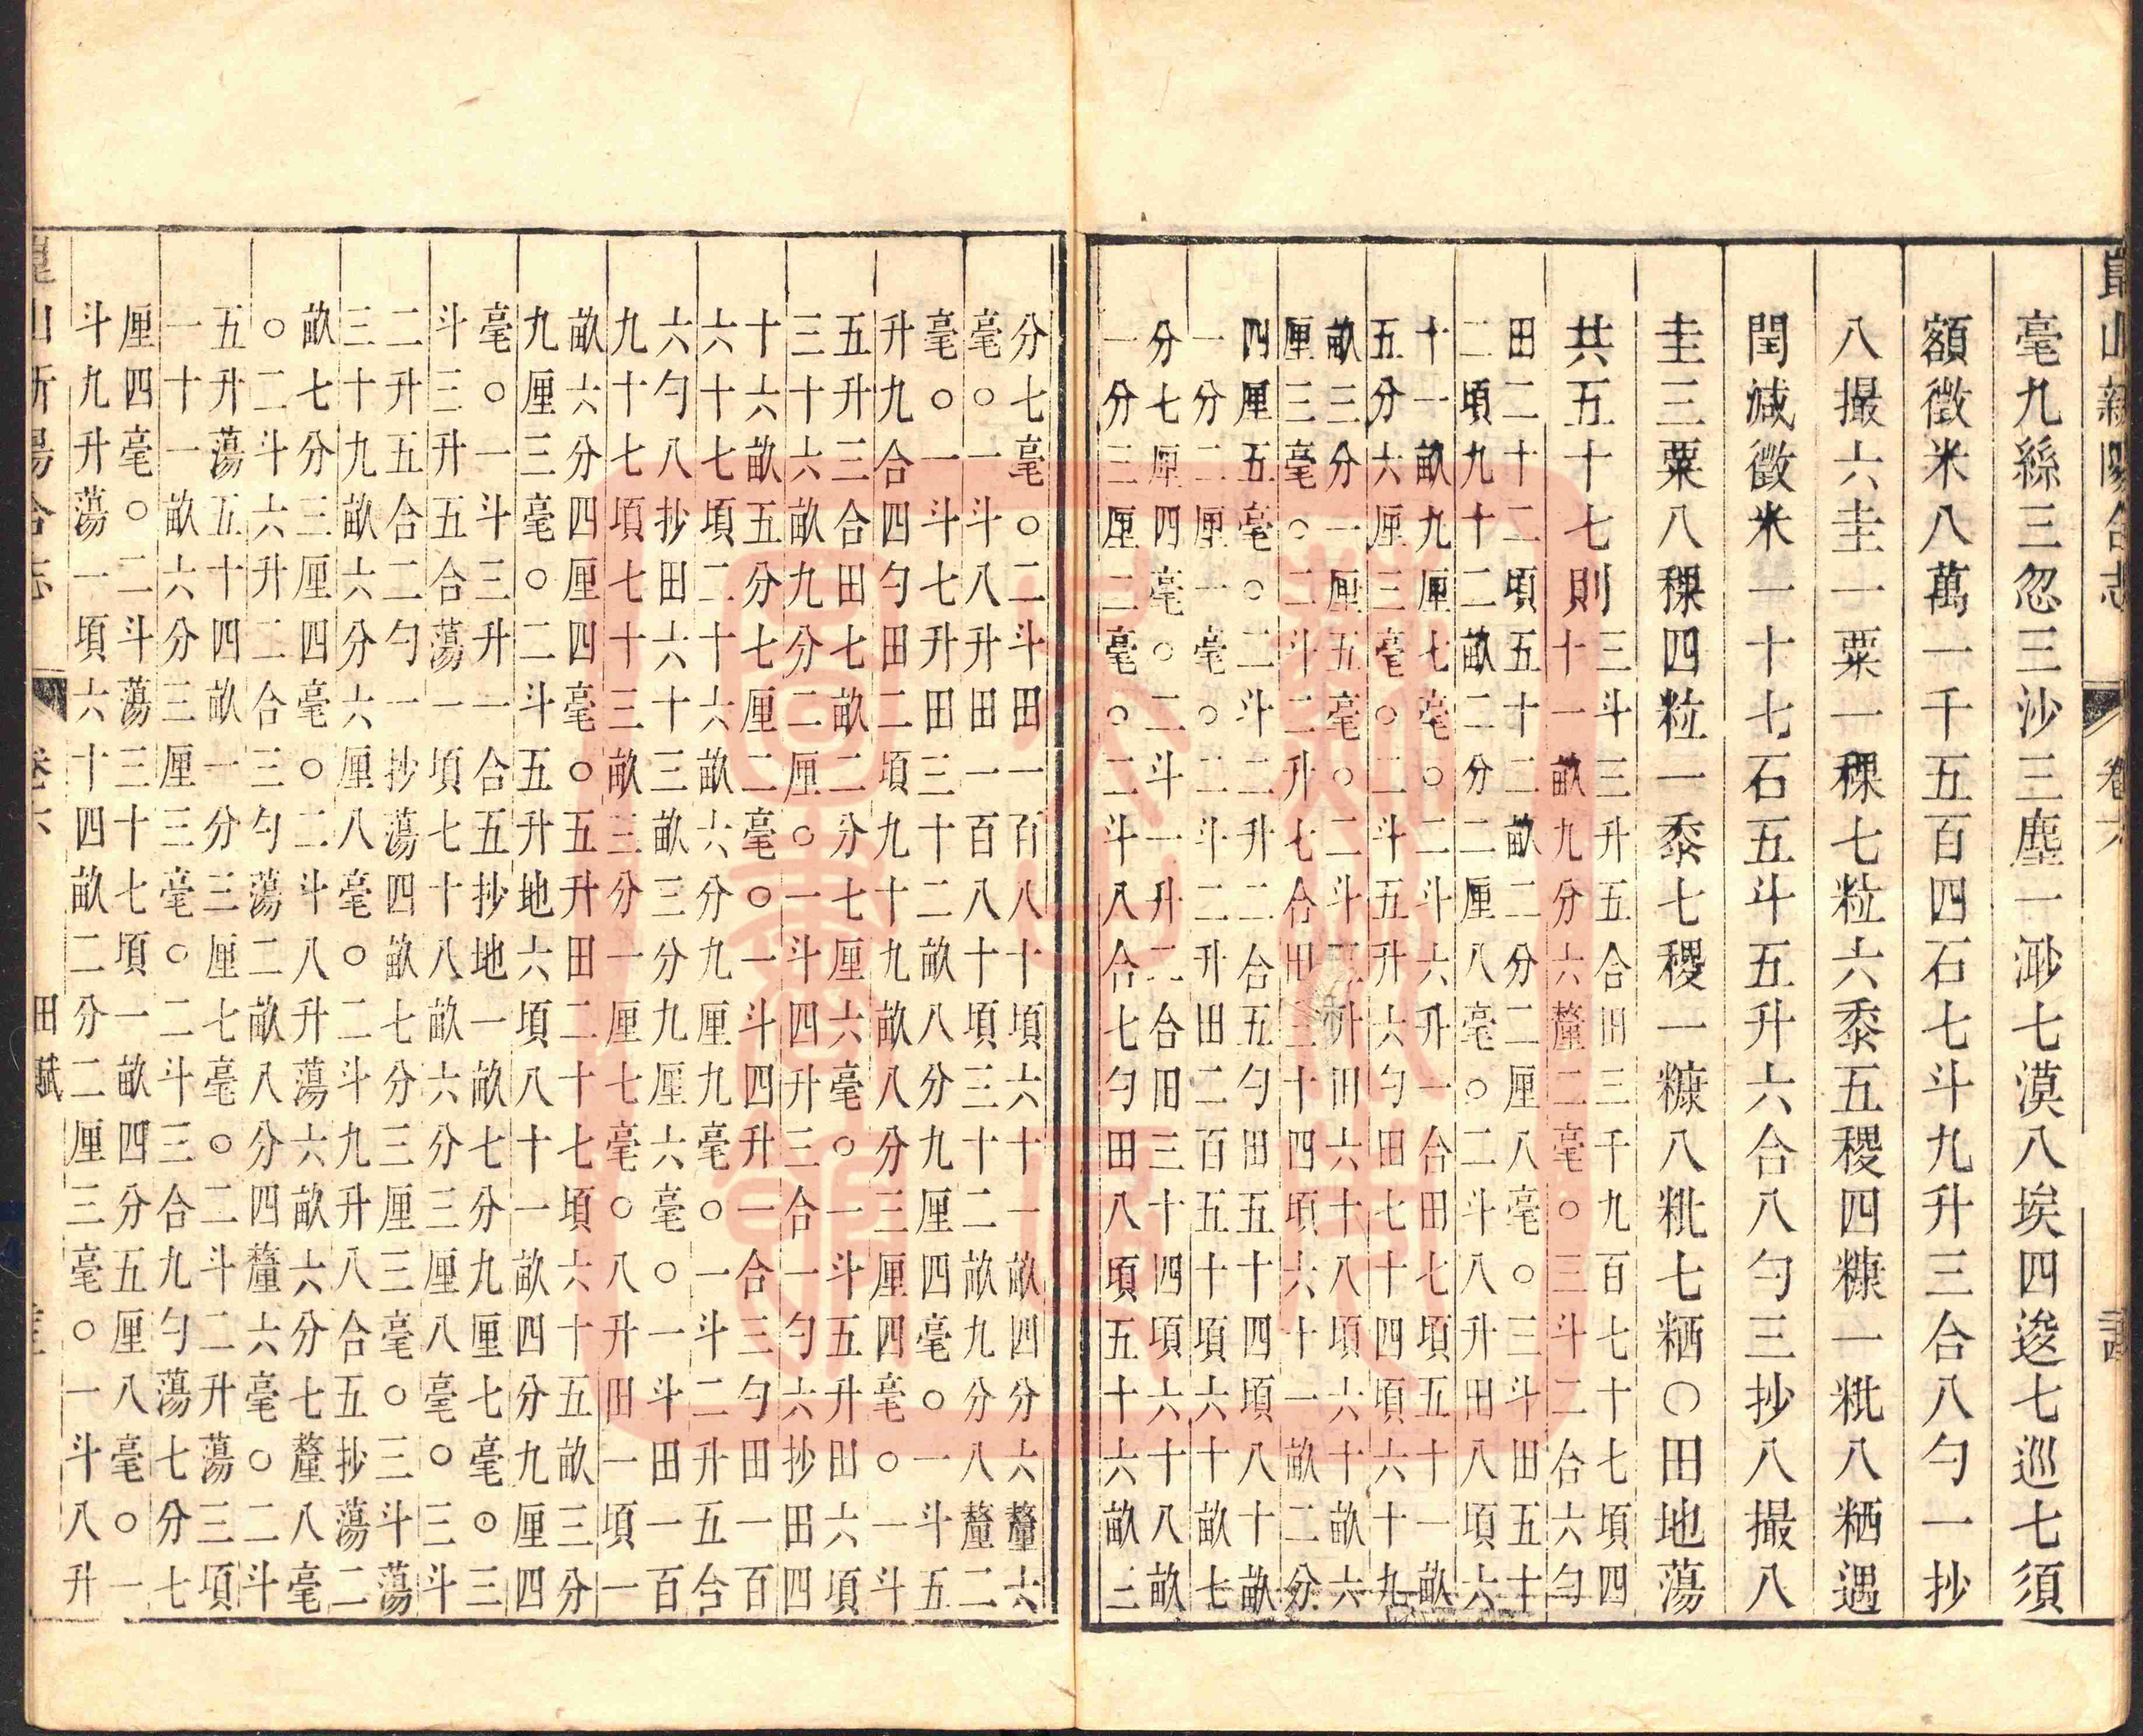 崑山新陽合志 卷六
毫九絲三忽三沙三塵一渺七漠八埃四逡七巡七須
額徵米八萬一千五百四石七斗九升三合八勺一抄
八撮六圭一粟一稞七粒六黍五稷四糠一粃八粞遇
閏減徵米一十七石五斗五升六合八勺三抄八撮八
圭三粟八稞四粒一黍七稷一糠八粃七粞〇田地蕩
共五十七則
三斗三升五合田三千九百七十七頃四
十一畝九分六釐二毫〇三斗二合六勺
田二十二頃五十二畝二分二厘八毫〇三斗田五十
二頃九十二畝二分二厘八毫〇二斗八升田八頃六
十一畝九厘七毫〇二斗六升一合田七頃五十一畝
五分六厘三毫〇二斗五升六勺田七十四頃六十九
畝三分一厘五毫〇二斗三升田六十八頃六十畝六
厘三毫〇二斗二升七合田三十四頃六十一畝二分
四厘五毫〇二斗二升二合五勺田五十四頃八十畝
一分二厘一毫〇二斗二升田二百五十頃六十畝七
分七厘四毫〇二斗一升二合田三十四頃六十八畝
一分三厘二毫〇二斗八合七勺田八頃五十六畝三
分七毫〇二斗田一百八十頃六十一畝四分六釐六
毫〇一斗八升田一百八十頃三十二畝九分八釐二
毫〇一斗七升田三十二畝八分九厘四毫〇一斗五
升九合四勺田二頃九十九畝八分三厘四毫〇一斗
五升三合田七畝二分七厘六毫〇一斗五升田六頃
三十六畝九分二厘〇一斗四升三合一勺六抄田四
十六畝五分七厘二毫〇一斗四升一合三勺田一百
六十七頃二十六畝六分九厘九毫〇一斗二升五合
六勺八抄田六十三畝三分九厘六毫〇一斗田一百
九十七頃七十三畝三分一厘七毫〇八升田一頃一
畝六分四厘四毫〇五升田二十七頃六十五畝三分
九厘三毫〇二斗五升地六頃八十一畝四分九厘四
毫〇一斗三升一合五抄地一畝七分九厘七毫〇三
斗三升五合蕩一頃七十八畝六分三厘八毫〇三斗
二升五合二勺一抄蕩四畝七分三厘三毫〇三斗蕩
三十九畝六分六厘八毫〇二斗九升八合五抄蕩二
畝七分三厘四毫〇二斗八升蕩六畝六分七釐八毫
〇二斗六升二合三勺蕩二畝八分四釐六毫〇二斗
五升蕩五十四畝一分三厘七毫〇二斗二升蕩三頃
一十一畝六分三厘三毫〇二斗三合九勺蕩七分七
厘四毫〇二斗蕩三十七頃一畝四分五厘八毫〇一
斗九升蕩一頃六十四畝二分二厘三毫〇一斗八升
崑山新陽合志 卷六 田賦